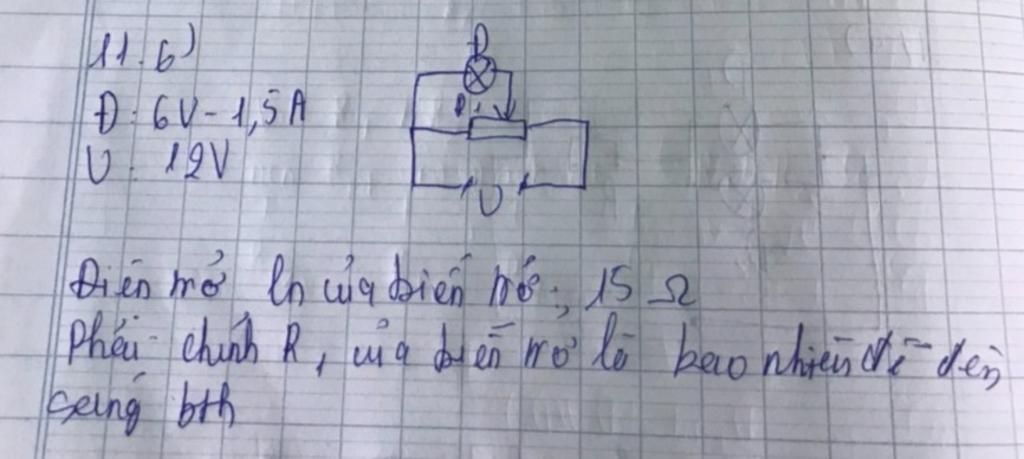 11.6)
Đ
Đ: 6V - 1,5A
R1
U: 12V
U
Điện trở ln của biến trở: 15 Ω
Phải chỉnh R1 của biến trở là bao nhiêu để đèn
sáng bth